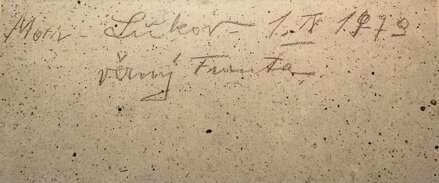 Mor. Lukov - 1. IV 1979
věrný Franta